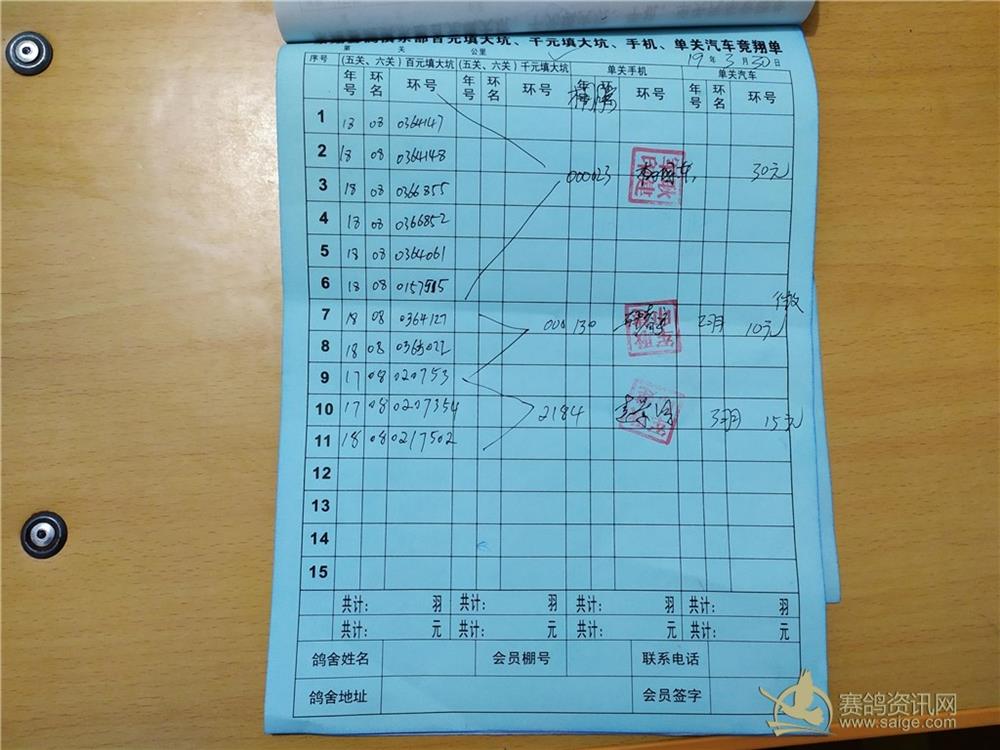 百元填大坑、千元填大坑、手机、单关汽车竞翔单
第 关 公里 19年3月30日
序号 (五关、六关)百元填大坑 (五关、六关)千元填大坑 单关手机 单关汽车
年号 环名 环号 年号 环名 环号 年号 环号 年号 环名 环号
1 18 08 0364147
2 18 08 0364148 000023 30元
3 18 08 0366855
4 18 08 0366852
5 18 08 0364061
6 18 08
7 18 08 0364127 000130 10元
8 18 08
9 17 08 020753
10 17 08 0207354 2184 15元
11 18 08 0217502
12
13
14
15
共计: 羽 共计: 羽 共计: 羽 共计: 羽
共计: 元 共计: 元 共计: 元 共计: 元
鸽舍姓名 会员棚号 联系电话
鸽舍地址 会员签字
赛鸽资讯网
www.saige.com